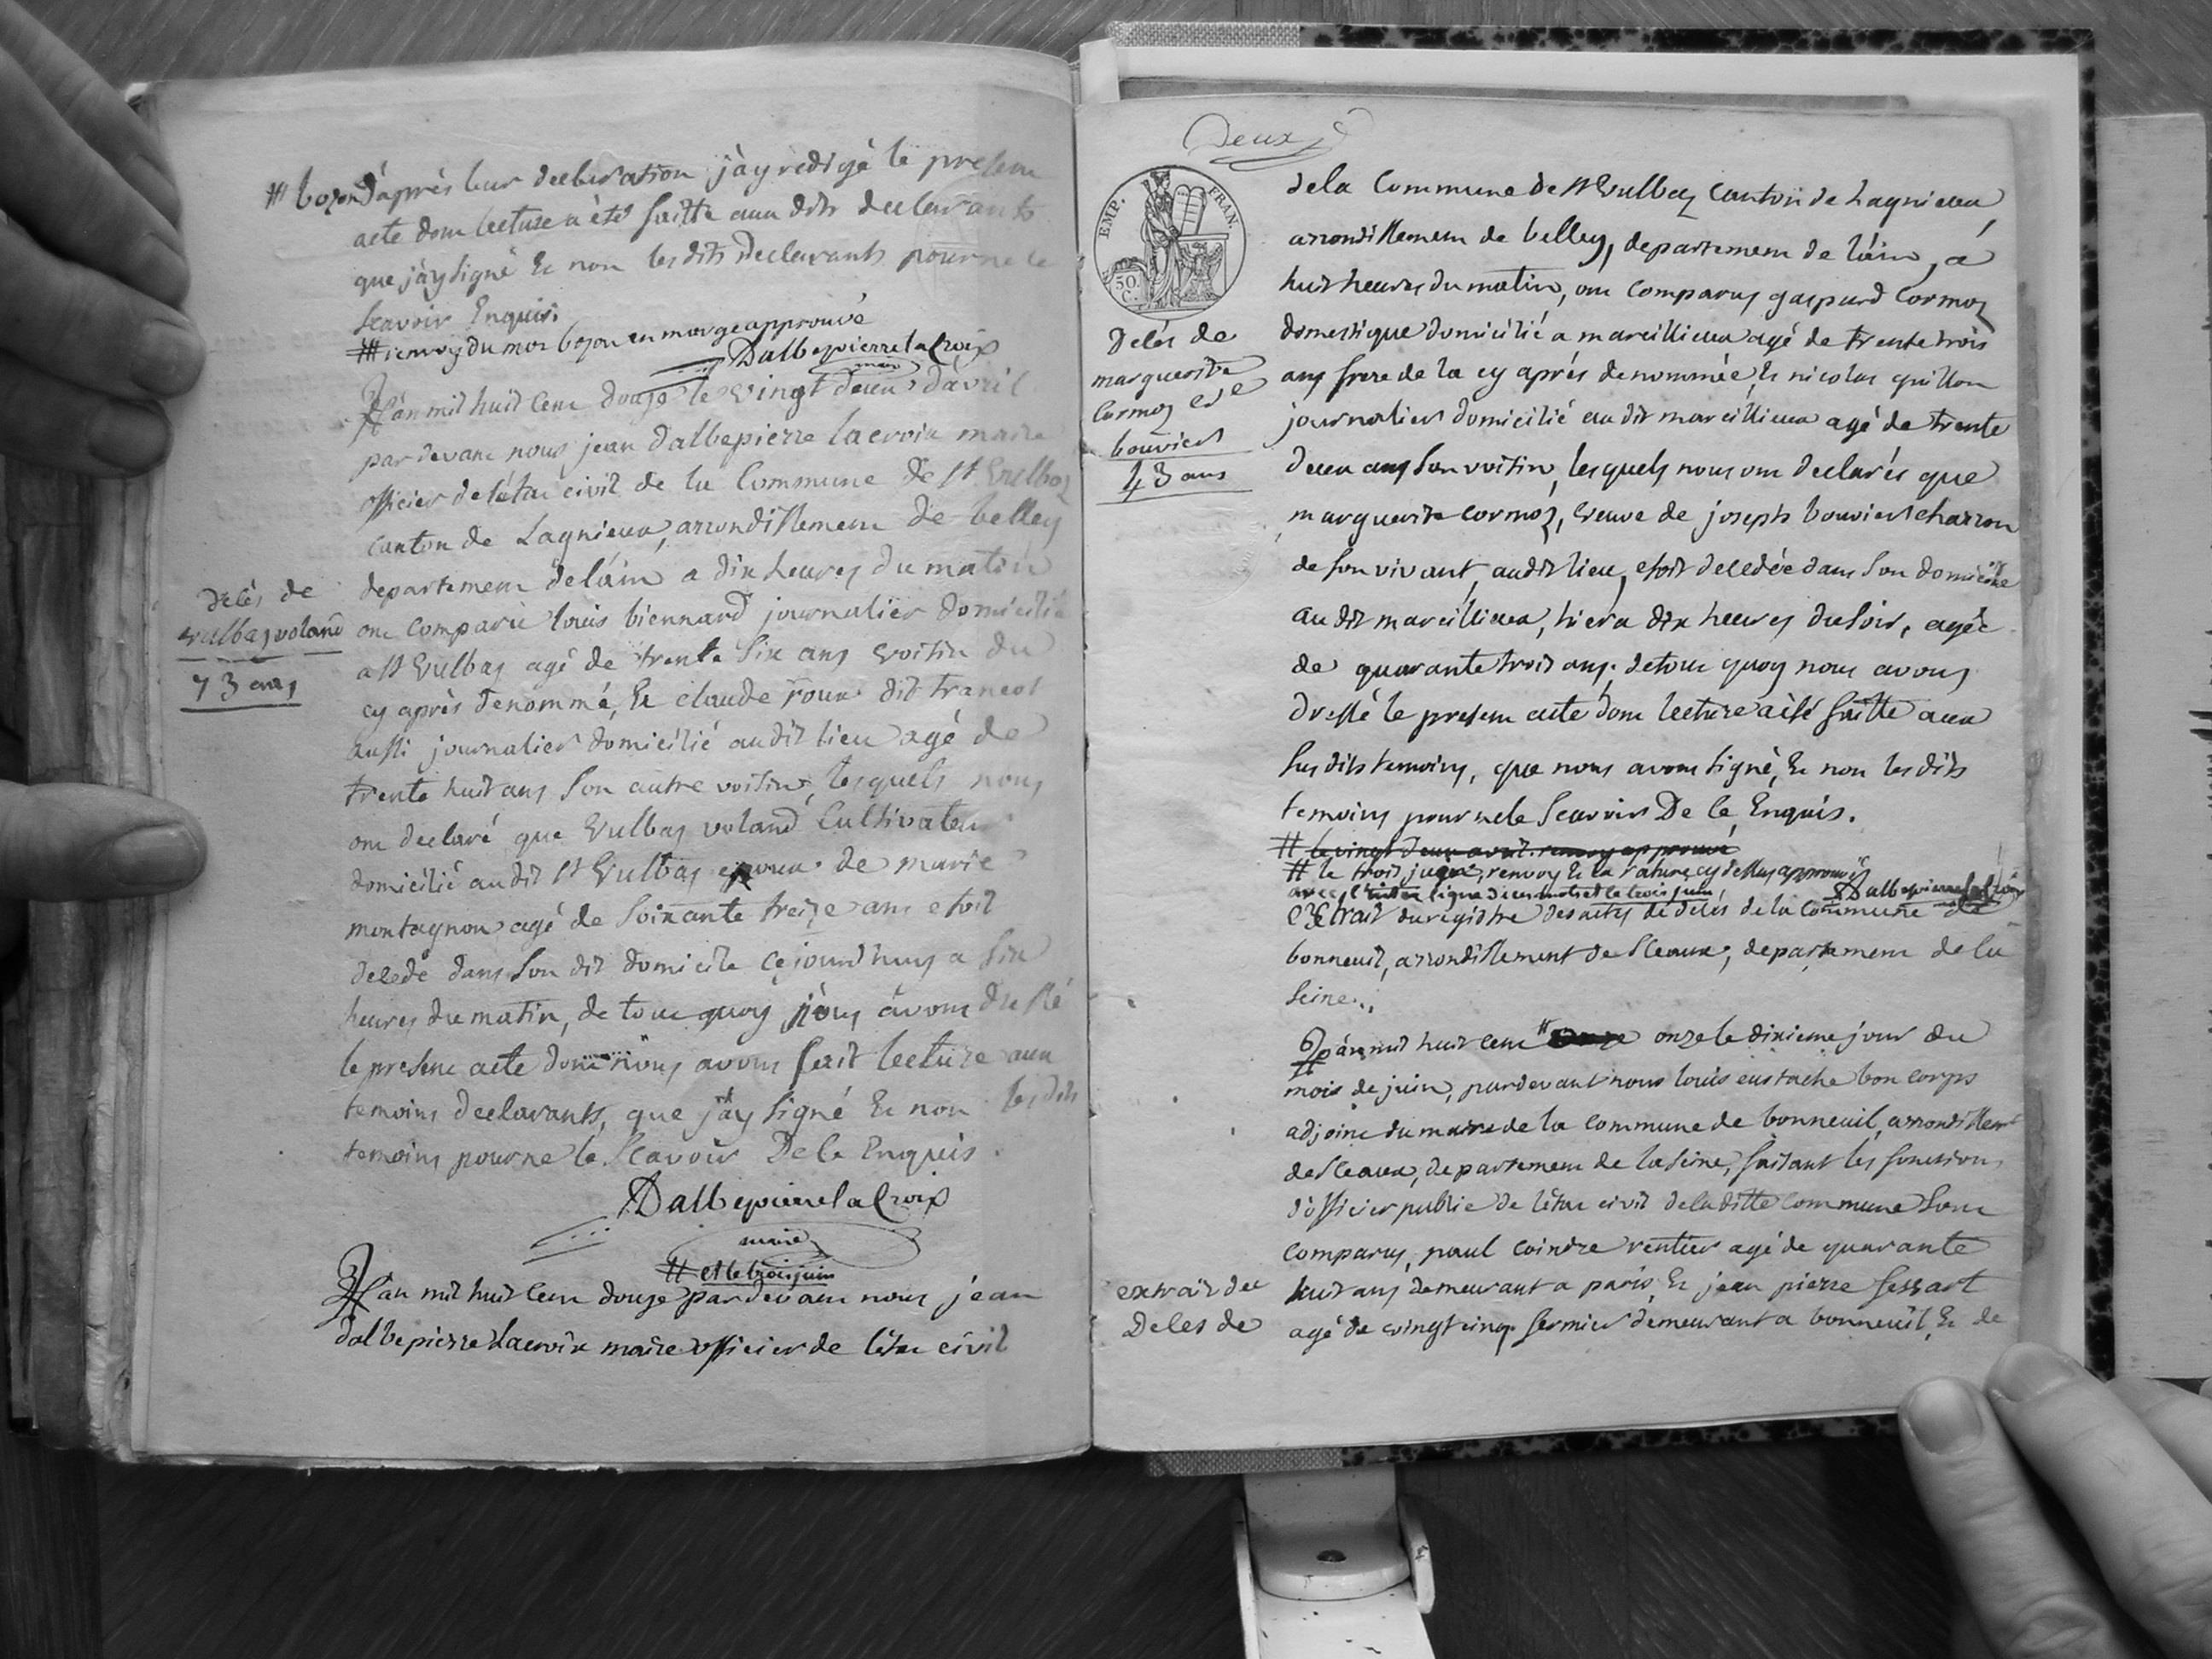 # bozon d'après leur declaration j'ay redigé le presem
acte dom lecture a été faitte aux dits declarants
que j'ay signé Et non les dits declarants pour ne le
scavoir Enquis.
# renvoy du mot bozon en marge approuvé
Dalbepierre la Croix
maire
L'an mil huit cem douze le vingt deux d'avril
par devant nous jean dalbepierre lacroix maire
officier de l'état civil de la Commune de St Vulbas
canton de Lagnieux, arrondissemem de belley
departemem de l'ain a dix heures du matin
Délés de
vulbas voland
73 ans
om comparu louis biennard journalier domicilié
a St Vulbas agé de trente six ans voisin du
cy après denommé, Et claude roux dit francot
aussi journalier domicilié au dit lieu agé de
trente huit ans son autre voisin, lesquels nous
om declaré que Vulbas voland Cultivateur
domicilié au dit St Vulbas epoux de marie
montagnon agé de soixante treize ans etoit
decedé dans son dit domicile ce jourd'huy a six
heures du matin, de tout quoy nous avons dressé
le present acte dont nous avons fait lecture aux
temoins declarants, que j'ay signé Et non les dits
temoins pour ne le Scavoir De le Enquis.
Dalbepierre la Croix
maire
# et le trois juin
L'an mil huit cem douze par devant nous jean
dalbepierre lacroix maire officier de l'état civil
Deux
EMP. FRAN.
50. C.
de la Commune de St Vulbas Canton de Lagnieux
arrondissemem de belley, departemem de l'ain, à
huit heures du matin, om Comparus gaspard Cormoz
domestique domicilié a marcillieux agé de trente trois
ans frere de la cy après denommée, Et nicolas quillon
journalier domicilié au dit marcillieux agé de trente
deux ans son voisin, lesquels nous om declarés que
marguerite Cormoz, veuve de joseph bouvier charron
de son vivant, au dit lieu, etoit decedée dans son domicile
au dit marcillieux, hier a dix heures du soir, agée
de quarante trois ans. de tout quoy nous avons
dressé le presem acte dom lecture a été faitte aux
susdits temoins, que nous avons signé, Et non les dits
temoins pour ne le Scavoir De le Enquis.
Délés de
marguerite
Cormoz vve
bouvier
43 ans
# le vingt deux avril renvoy approuvé
# le trois juin, renvoy Et la rature cy dessus approuvé
Dalbepierre la Croix
Extrait du registre des actes de délés de la Commune de
bonneuil, arrondissement de Sceaux, departemem de la
seine.
L'an mil huit cem onze le dixieme jour du
mois de juin, pardevant nous louis eustache bon corps
adjoint du maire de la commune de bonneuil, arrondissem
de Sceaux, departemem de la seine, faisant les fonctions
d'officier public de l'état civil de la ditte commune Sont
comparus, paul coindre rentier agé de quarante
huit ans demeurant a paris, Et jean pierre fessart
agé de vingt cinq fermier demeurant a bonneuil, Et de
extrait de
Deles de